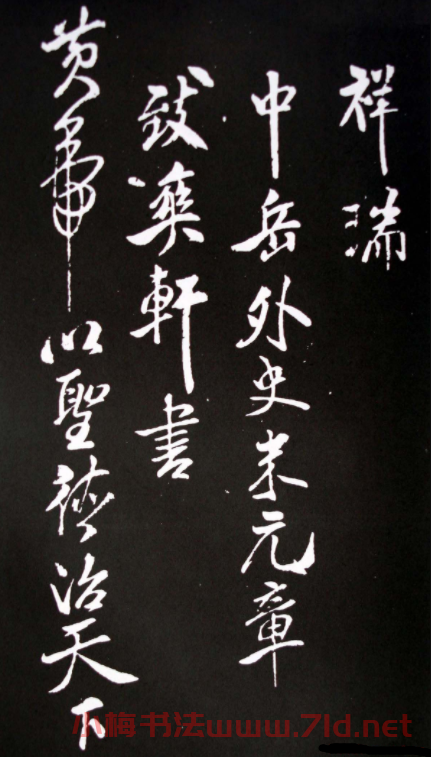 祥瑞
中岳外史米元章
致爽軒書
黄帝以聖德治天下
小梅书法www.7ld.net